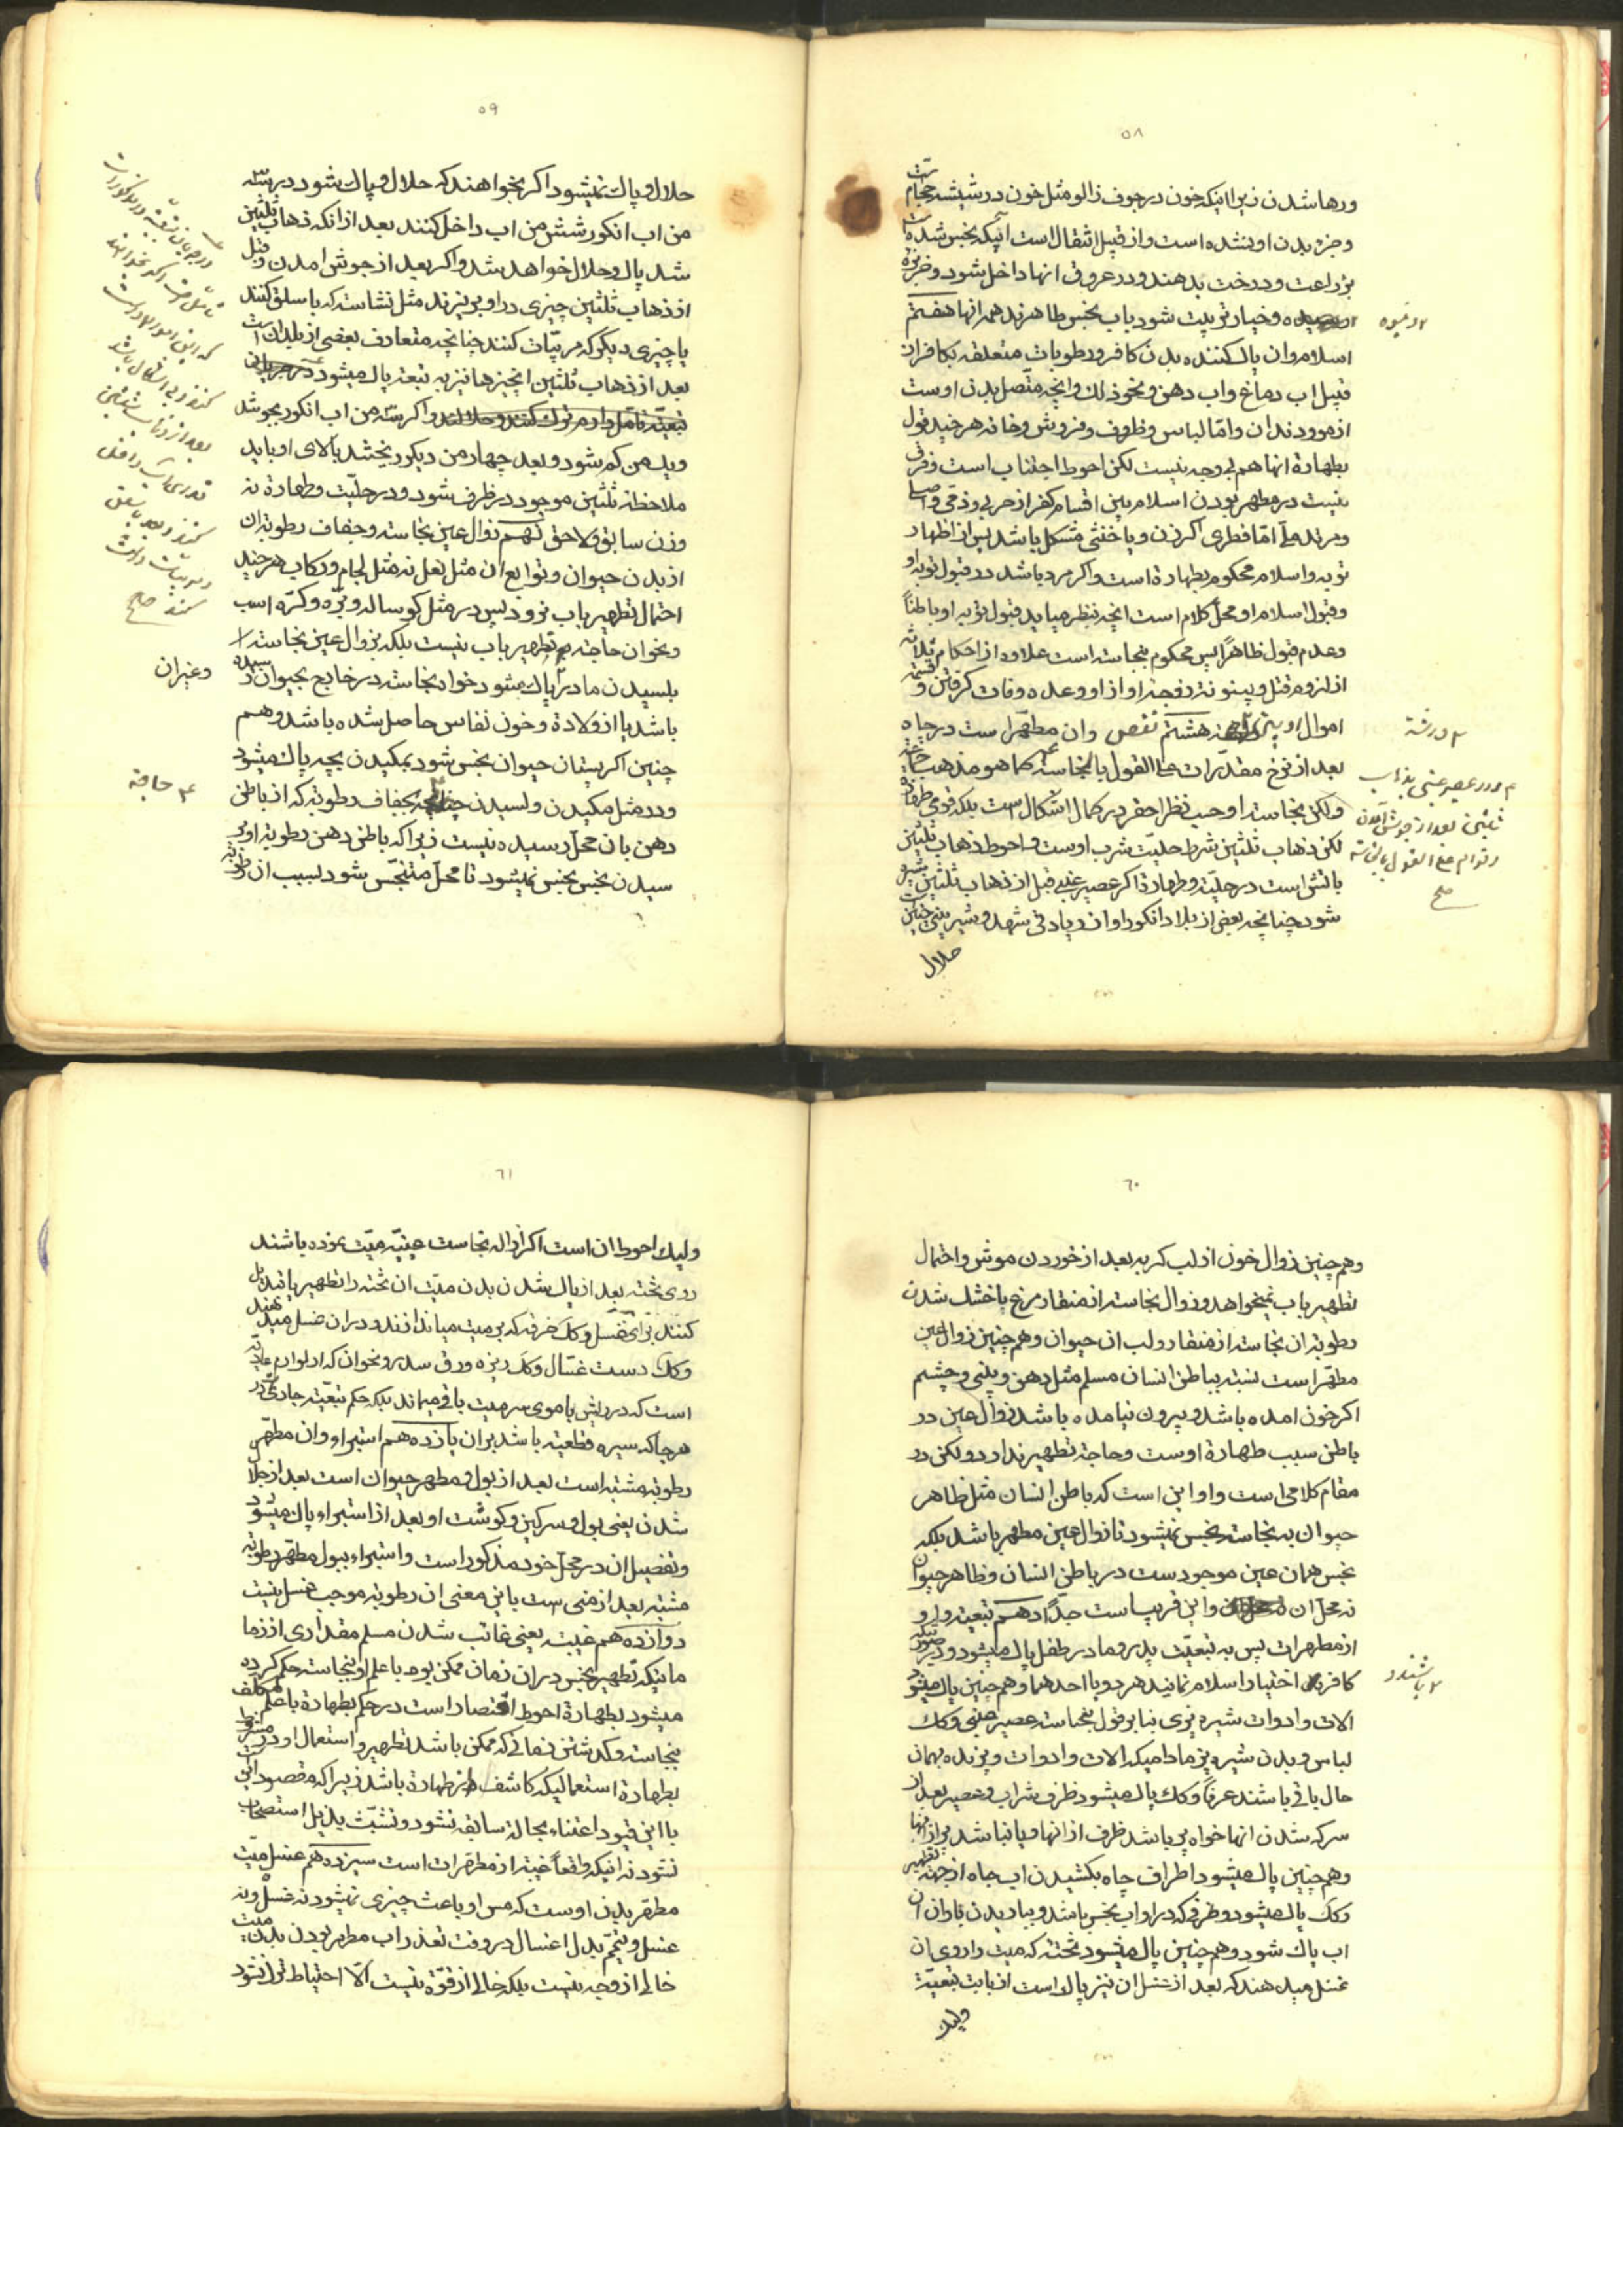 ۵۸
ورها شدن زیرا اینکه خون در جوف زالو مثل خون در شیشه حجام
و جزء بدن او نشده است و از قبیل انتقال است آبیکه نجس شده
بزراعت و درخت بدهند و در عروق انها داخل شود و خربزه
و خیار تربیت شود باب نجس طاهرند همه انها هفتم
اسلام وان پاک کننده بدن کافر و رطوبات متعلقه بکافر از
قبیل اب دماغ واب دهن و نحو ذلک وانچه متصل بدن اوست
از مو و دندان و امّا لباس و ظروف و فروش و خانه هر چند قول
بطهارة انها هم بی وجه نیست لکن احوط اجتناب است و فرقی
نیست در مطهر بودن اسلام بین اقسام کفر از حربی و ذمّی و اصلی
و مرتد ملّی امّا فطری اگر زن و یا خنثی مشکل باشد پس از اظهار
توبه و اسلام محکوم بطهارة است واکر مرد باشد در قبول توبه او
وقبول اسلام او محلّ کلام است انچه بنظر میاید قبول توبه او باطناً
وعدم قبول ظاهراً پس محکوم بنجاسته است علاوه از احکام ثلاثه
از لزوم قتل و بینونته زوجه او از او وعده وفات کرفتن و
اموال او بین هشتم نقص وان مطهّر است در چاه
بعد از نزح مقدّرات علی القول بالنجاسته کما هو مذهب جماعة
ولکن نجاسته او حسب نظر احقر در کمال اشکال است بلکه قوی طهارة
لکن ذهاب ثلثین شرط حلیّت شرب اوست واحوط ذهاب ثلثین
باتش است در حلیّته و طهارة اکر عصیر عنبی قبل از ذهاب ثلثین
شود چنانچه بعض از بلاد انکور او از زیادتی شهد و شیرینی چنین
حلال
۲ ومیوه
۳ ورثه
۴ ودر عصیر عنبی بذهاب
ثلثین بعد از جوش آمدن
علی القول بالنجاسته
صح
۵۹
حلال و پاک نمیشود اکر بخواهند که حلال و پاک شود در سه
من اب انکور شش من اب داخل کنند بعد از انکه ذهاب ثلثین
شد پاک و حلال خواهد شد واکر بعد از جوش امدن وقبل
از ذهاب ثلثین چیزی در او بریزند مثل نشاسته که باسلق کنند
یا چیزی دیکر که مربّیات کنند چنانچه متعارف بعضی از بلدان است
بعد از ذهاب ثلثین انچیزها نیز به تبعته پاک میشود
واکر سه من اب انکور بجوشد
ویک من کم شود و بعد چهار من دیکر ریختند بالای او باید
ملاحظه ثلثین موجود در ظرف شود و در حلیّت وطهارة نه
وزن سابق ولاحق نهم زوال عین نجاسته وجفاف رطوبه ان
از بدن حیوان و توابع ان مثل نعل نه مثل لجام ورکاب هر چند
احتمال تطهیر باب نرود پس در مثل کوساله و برّه و کرّه اسب
و نحوان حاجته به تطهیر باب نیست بلکه بزوال عین نجاسته
بلسیدن مادر پاک میشود خواه نجاسته در خارج بحیوان رسیده
باشد یا از ولادة وخون نفاس حاصل شده باشد وهم
چنین اکر پستان حیوان نجس شود بمکیدن بچه پاک میشود
ودر مثل مکیدن ولسیدن بجفاف رطوبه که از باطن
دهن بان محلّ رسیده نیست زیرا که باطن دهن رطوبه او بر
سیدن نجس نجس نمیشود تا محلّ متنجّس شود بسبب ان رطوبه
وغیران
۴ حاجته
۶۰
وهم چنین زوال خون از لب کربه بعد از خوردن موش واحتمال
تطهیر باب نمیخواهد وزوال نجاسته از منقار مرغ یا خشک شدن
رطوبه ان نجاسته از منقار و لب ان حیوان وهم چنین زوال عین
مطهّر است نسبته بباطن انسان مسلم مثل دهن و بینی و چشم
اکر خون امده باشد و بیرون نیامده باشد زوال عین در
باطن سبب طهارة اوست وحاجة تطهیر ندارد ولکن در
مقام کلامی است و او این است که باطن انسان مثل ظاهر
حیوان به نجاسته نجس نمیشود تا زوال عین مطهر باشد بلکه
نجس همان عین موجود ست در باطن انسان وظاهر حیوان
نه محلّ ان واین قریب است جدّاً دهم تبعیّته واو
از مطهرات پس به تبعیّت پدر و مادر طفل پاک میشود در صورتیکه
کافر اختیار اسلام نمایند هر دو یا احدهما وهم چنین پاک میشود
الات وادوات شیره پزی بنا بر قول بنجاسته عصیر عنبی وکک
لباس و بدن شیره پز مادامیکه الات وادوات و پزنده بهمان
حال باقی باشند عرفاً وکک پاک میشود ظرف شراب و عصیر بعد از
سرکه شدن انها خواه پر باشد ظرف از انها و یا نباشد پر از انها
وهم چنین پاک میشود اطراف چاه بکشیدن اب چاه از جهته تطهیر
وکک پاک میشود ظرفی که در او اب نجس باشد و بباریدن باران ان
اب پاک شود وهم چنین پاک میشود تخته که میت را روی ان
غسل میدهند که بعد از غسل ان نیز پاک است از بابت تبعیّة
ولیک
۲ باشند و
۶۱
ولیک احوط ان است اکر ازاله نجاست عینیّه میّت نموده باشند
روی تخته بعد از پاک شدن بدن میّت ان تخته را تطهیر
کنند برای تغسّل وکک خرقه که بر میت میاندازند و در ان غسل میدهند
وکک دست غسّال وکک ریزه ورق سدر و نحوان که از لوازم عادیّه
است که در ریش یا موی سر میت باقی میماند بلکه حکم تبعیّته جاری در
هر جا که سیره قطعیّه باشد بر ان یازدهم استبراء وان مطهّر
رطوبه مشتبه است بعد از بول و مطهر حیوان است بعد از جلال
شدن یعنی بول و سرکین و کوشت او بعد از استبراء پاک میشود
وتفصیل ان در محلّ خود مذکور است واستبراء ببول مطهّر رطوبه
مشتبه بعد از منی ست باین معنی ان رطوبه موجب غسل نیست
دوازدهم غیبته یعنی غائب شدن مسلم مقداری از زما
مانیکه تطهیر نجس در ان زمان ممکن بود با علم او بنجاسته حکم کرده
میشود بطهارة احوط اقتصار است در حکم بطهارة باعلم مکلّف
بنجاسته وکذشتن زمانی که ممکن باشد تطهیر و استعمال او در مشروط
بطهارة استعمالیکه کاشف از طهارة باشد زیرا که مقصود این
با این قیود اعتناء بحالة سابقه نشود و تشبّث بذیل استصحاب
نشود نه اینکه واقعاً غیبته از مطهّرات است سیزدهم غسل میّت
مطهّر بدن اوست که مس او باعث چیزی نمیشود نه غسل و نه
غسل و تیمّم بدل اغسال در وقت تعذر اب مطهر بودن بدن میت
خالی از وجه نیست بلکه خالی از قوّة نیست الّا احتیاط ترک نشود